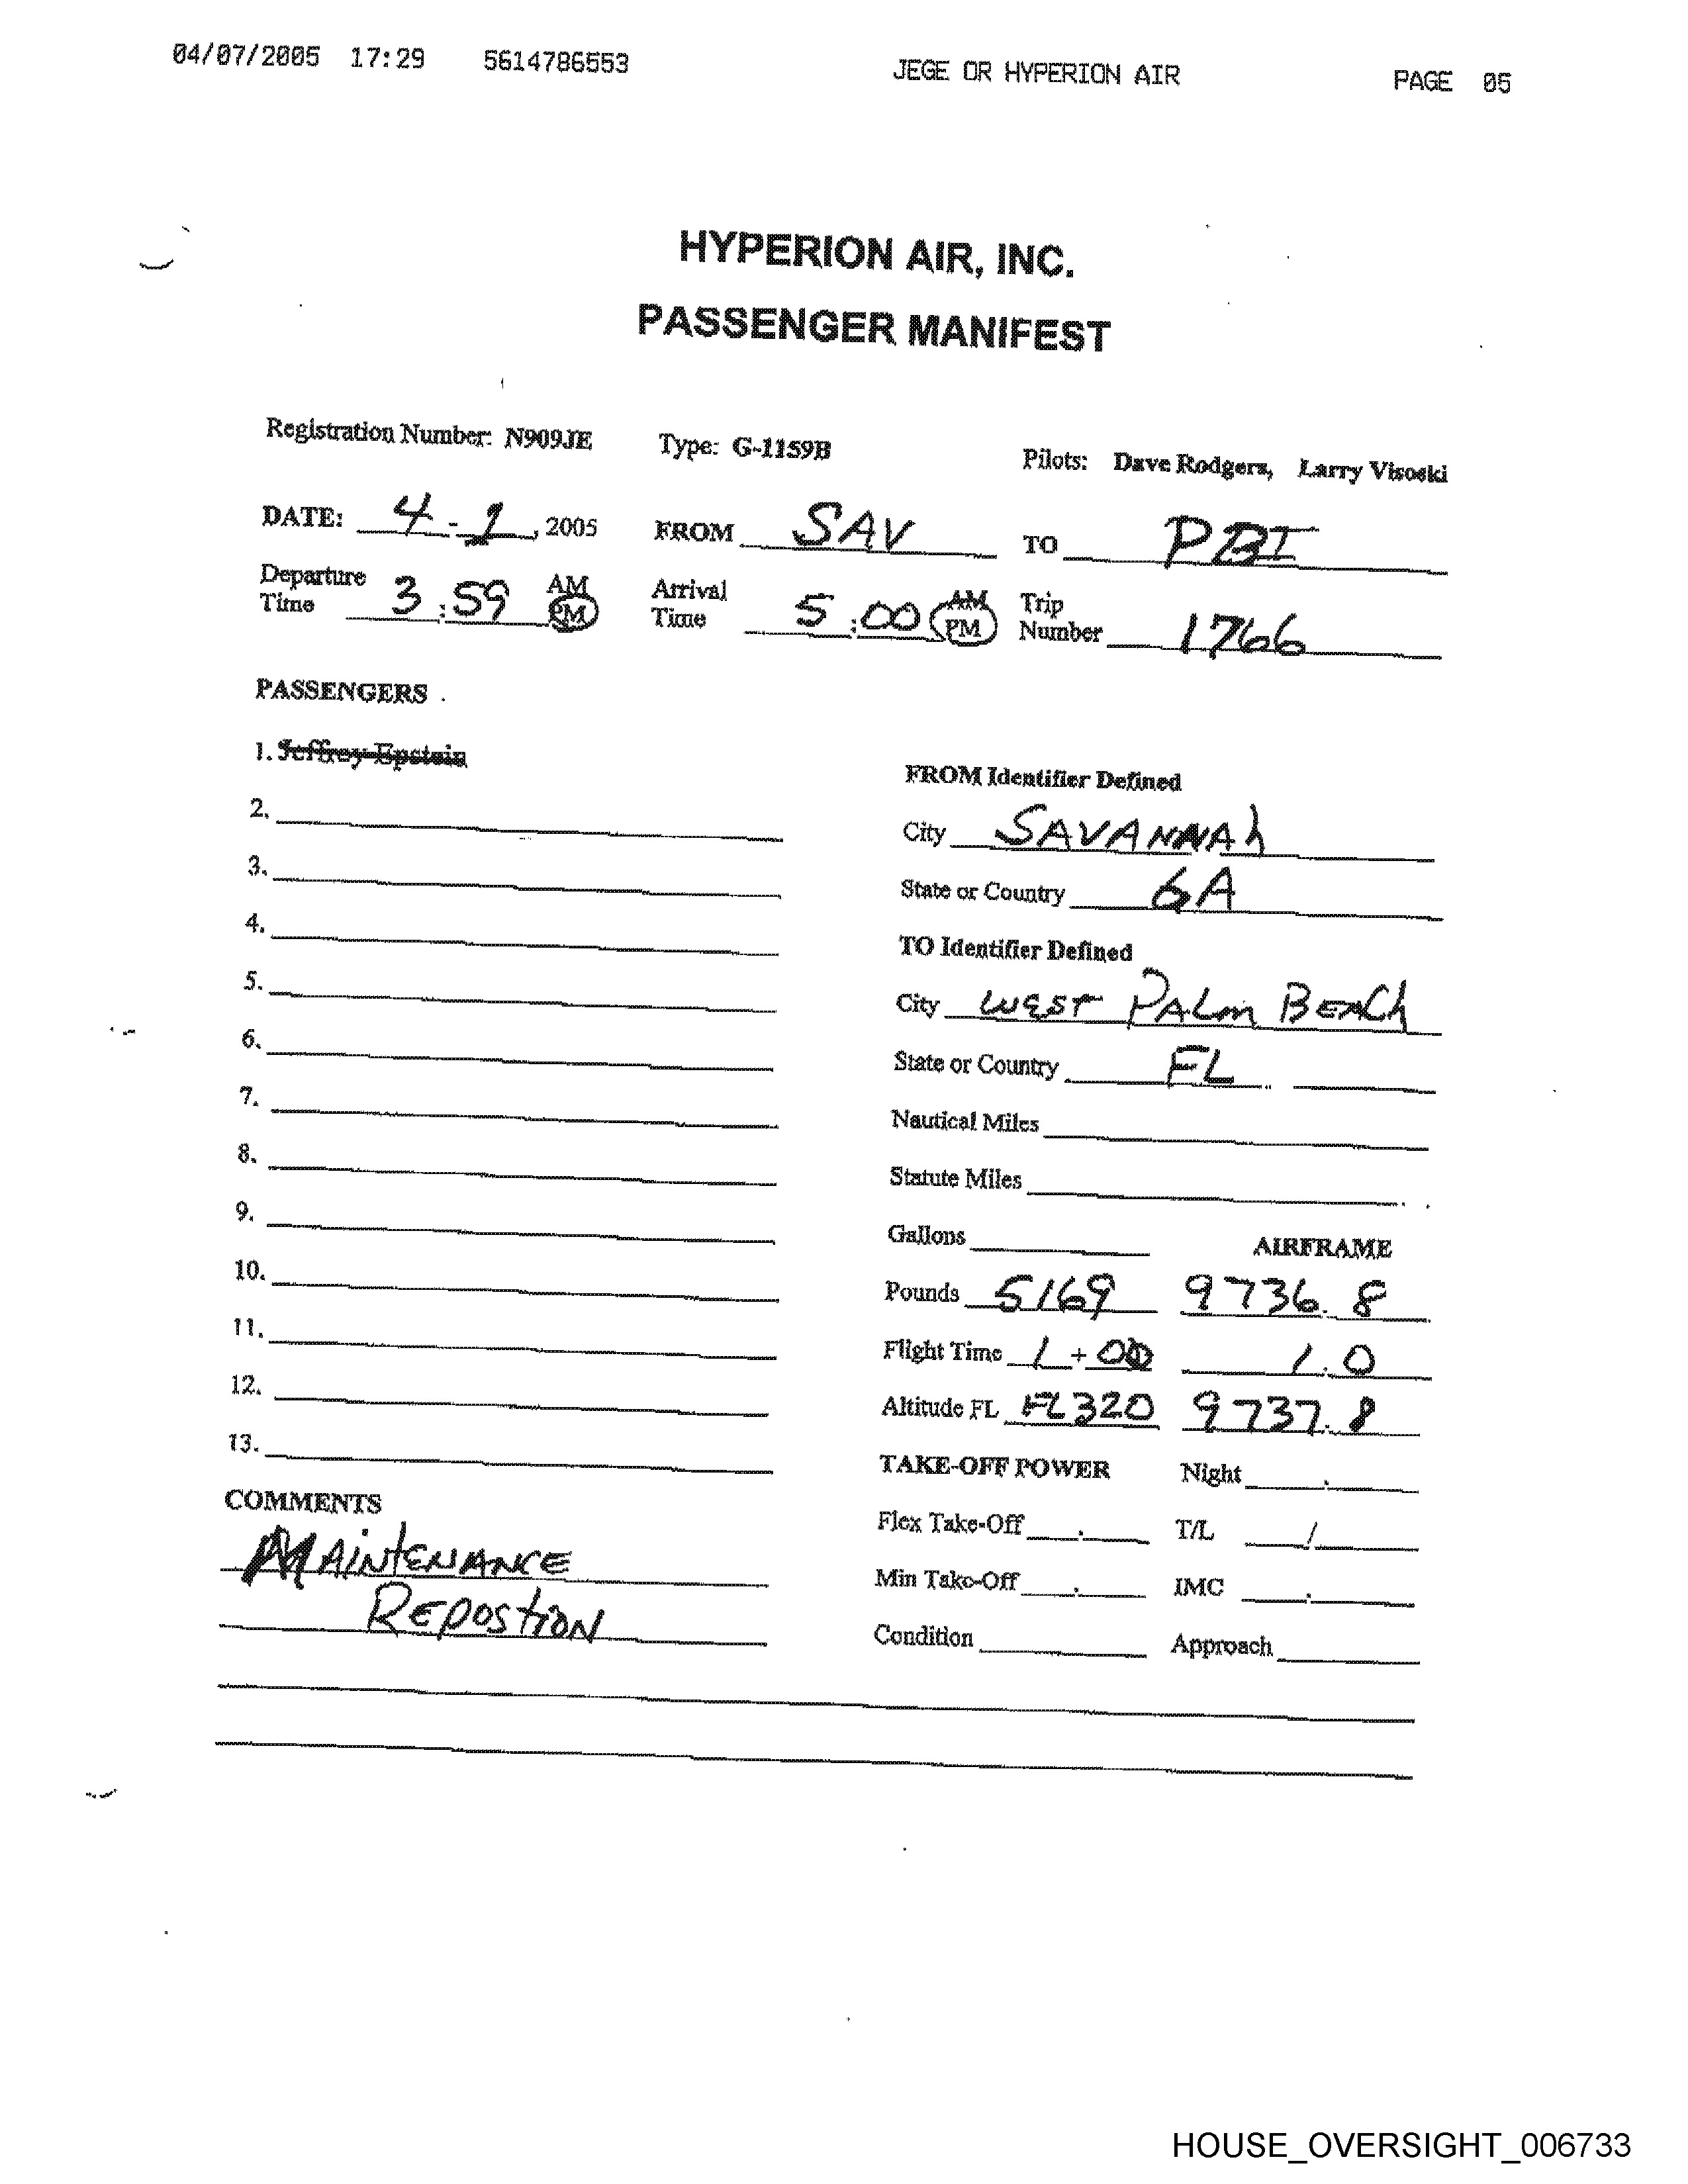 04/07/2005 17:29 5614786553 JEGE OR HYPERION AIR PAGE 05
HYPERION AIR, INC.
PASSENGER MANIFEST
Registration Number: N909JE Type: G-1159B Pilots: Dave Rodgers, Larry Visoski
DATE: 4 - 1, 2005 FROM SAV TO PBI
Departure Time 3:59 AM PM Arrival Time 5:00 AM PM Trip Number 1766
PASSENGERS
1. Jeffrey Epstein
FROM Identifier Defined
2.
City SAVANNAh
3.
State or Country GA
4.
TO Identifier Defined
5.
City WEST PALm BEACh
6.
State or Country FL
7.
Nautical Miles
8.
Statute Miles
9.
Gallons AIRFRAME
10.
Pounds 5169 9736.8
11.
Flight Time 1+00 1.0
12.
Altitude FL FL320 9737.8
13.
TAKE-OFF POWER Night
COMMENTS
Flex Take-Off T/L /
MAINtENANCE
Min Take-Off IMC
REPOStiON
Condition Approach
HOUSE_OVERSIGHT_006733